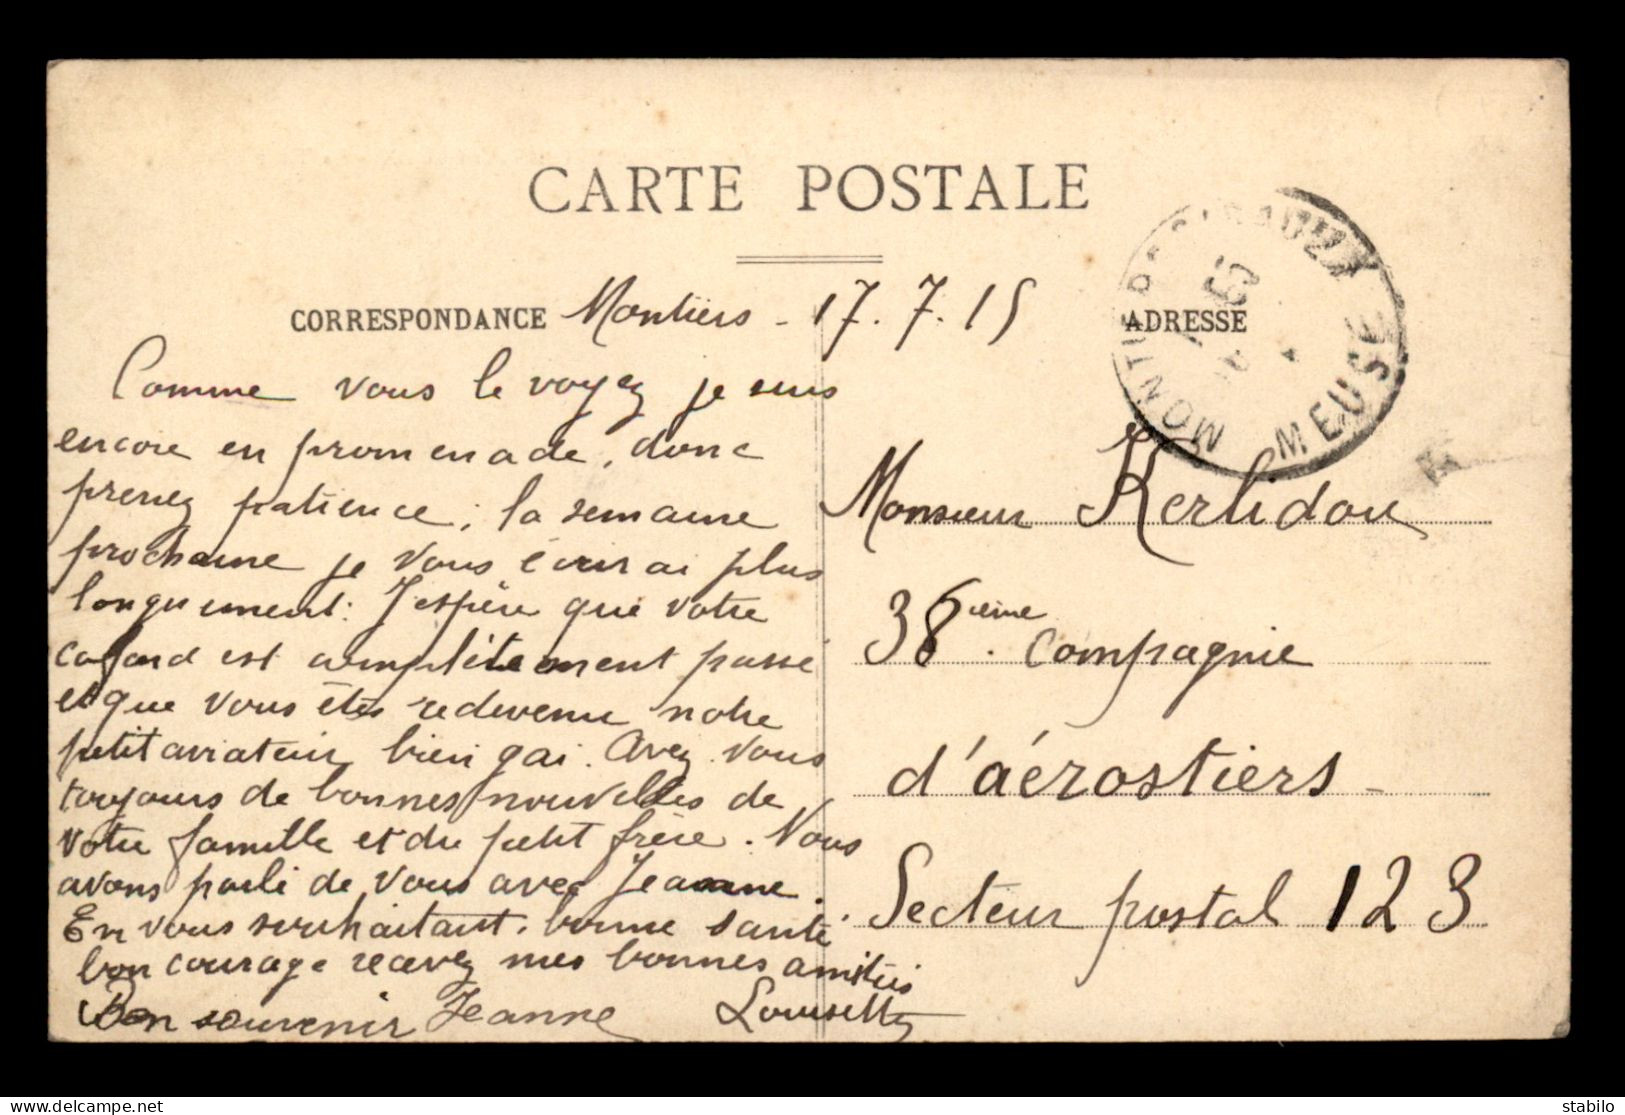 CARTE POSTALE
CORRESPONDANCE
Montiers - 17.7.15
Comme vous le voyez je suis
encore en promenade, donc
prenez patience; la semaine
prochaine je vous écrirai plus
longuement. J'espère que votre
cafard est complètement passé
et que vous êtes redevenu notre
petit aviateur bien gai. Avez vous
toujours de bonnes nouvelles de
votre famille et du petit frère. Nous
avons parlé de vous avec Jeanne.
En vous souhaitant bonne santé
bon courage recevez mes bonnes amitiés
Bon souvenir Jeanne Louisette
ADRESSE
MEUSE
Monsieur Kerlidou
38ième Compagnie
d'aérostiers -
Secteur postal 123
delcampe.net
stabilo